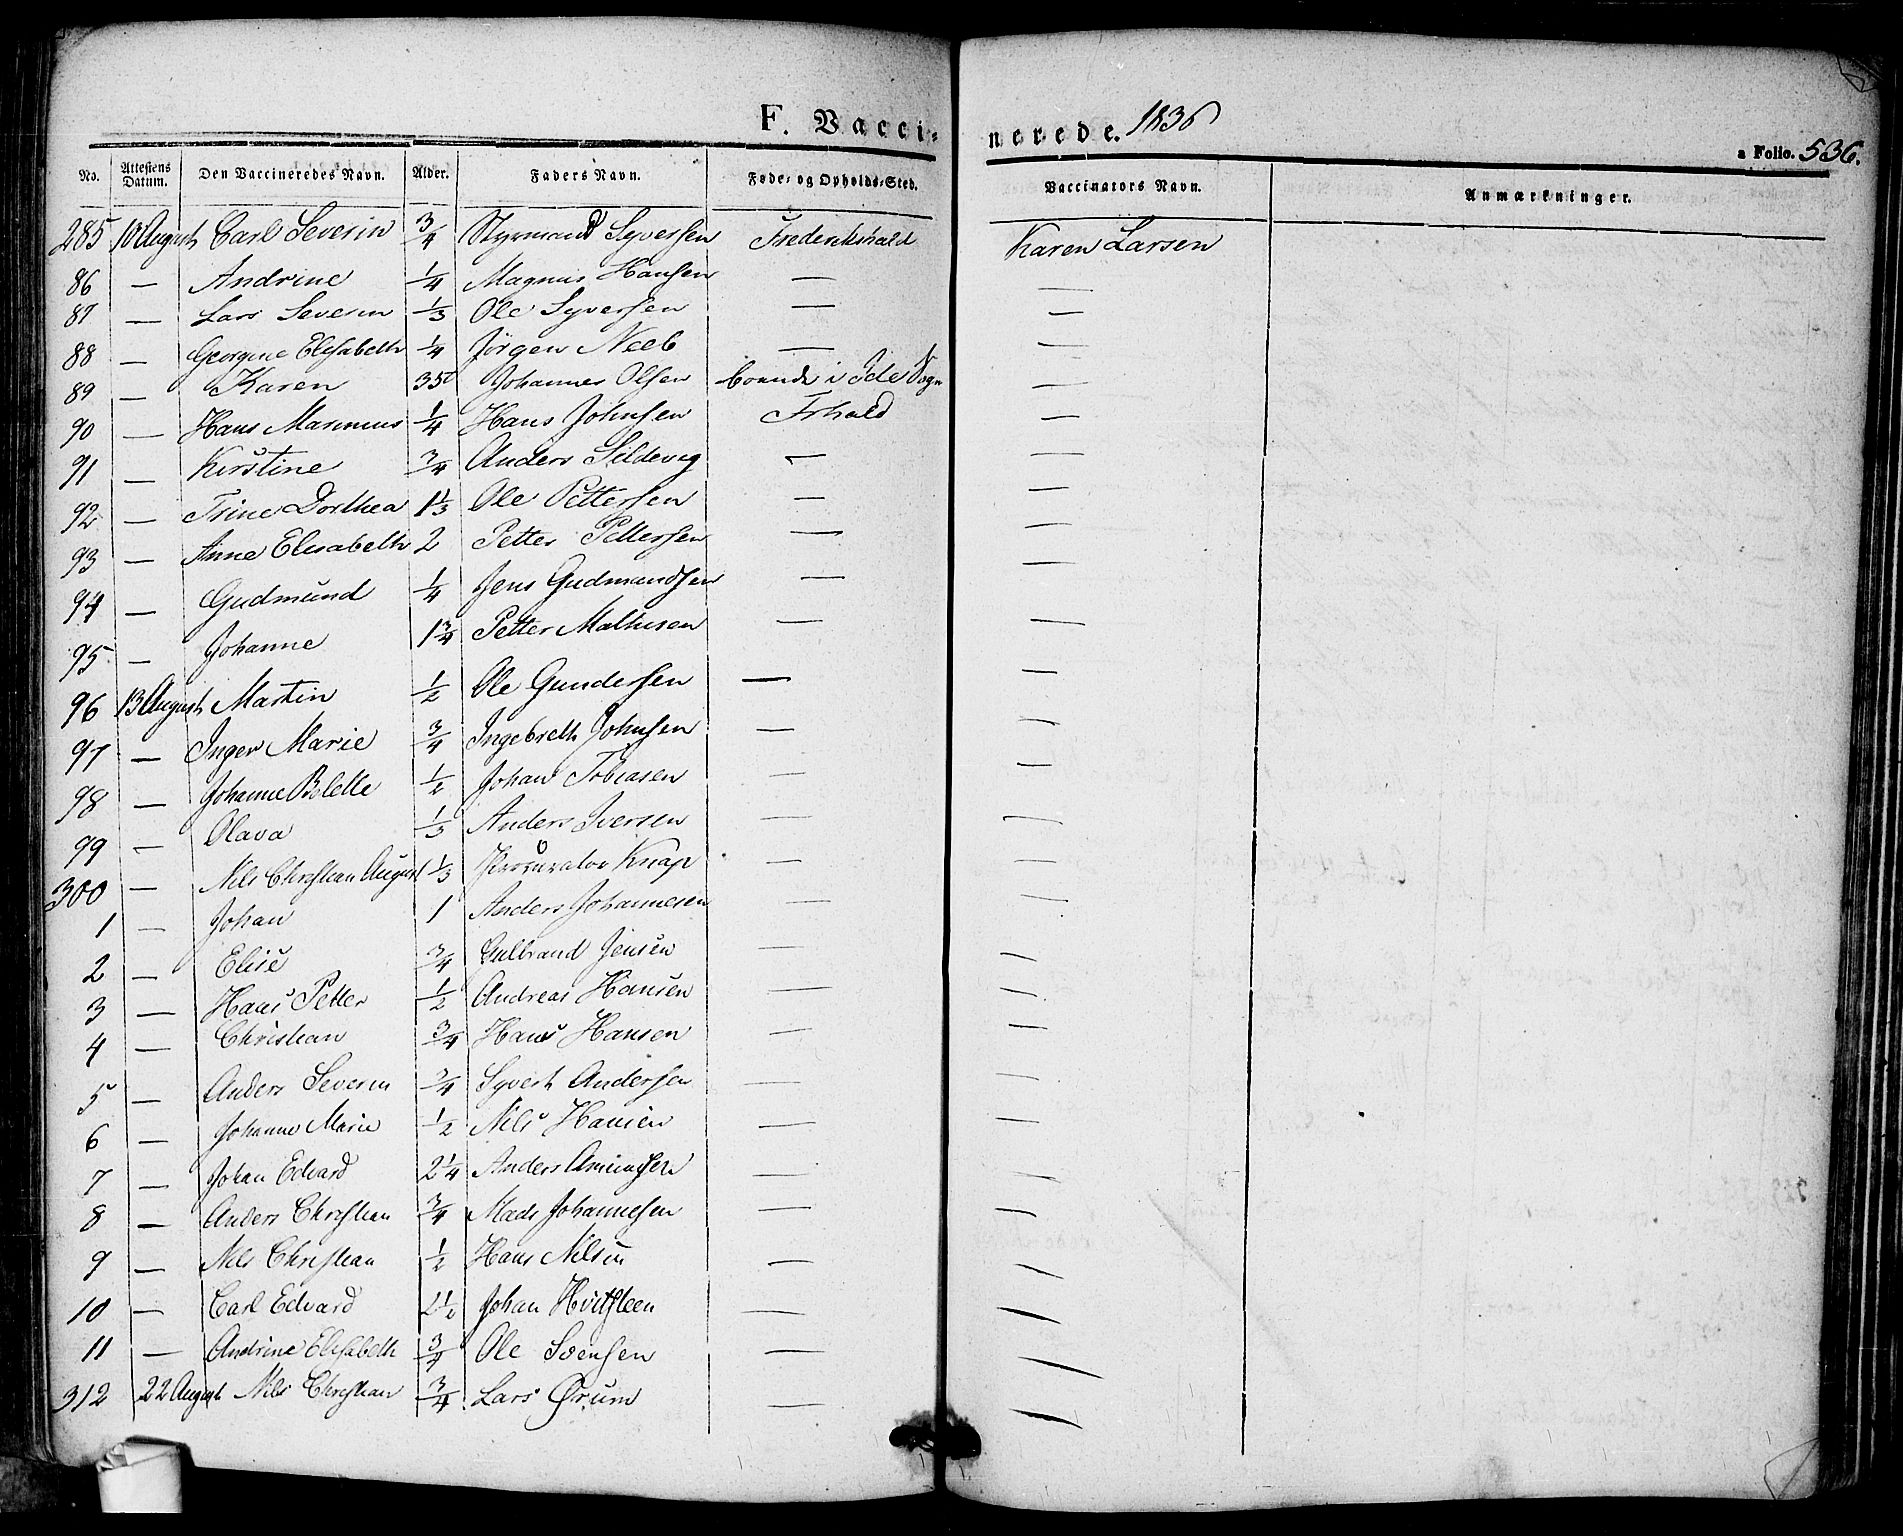 F. Vacci- nerede. 1836
a Folio. 536.
No. Attestens Datum. Den Vaccineredes Navn. Alder. Faders Navn. Føde- og Opholds-Sted. Vaccinators Navn. Anmærkninger.
285 10 August Carl Severin 3/4 Styrmand Syversen Frederikshald Karen Larsen
86 — Andrine 1/4 Magnus Hansen — —
87 — Lars Severin 1/3 Ole Syversen — —
88 — Georgine Elisabeth 1/4 Jörgen Neeb — —
89 — Karen 35 Johannes Olsen boende i Ide Sogn —
90 — Hans Marinius 1/4 Hans Johnsen Frhald —
91 — Kirstine 3/4 Anders Sildevig — —
92 — Trine Dorthea 1 1/3 Ole Pettersen — —
93 — Anne Elisabeth 2 Petter Pettersen — —
94 — Gudmund 1/4 Jens Gudmundsen — —
95 — Johanne 1 3/4 Petter Mathisen — —
96 13 August Martin 1/2 Ole Gundersen — —
97 — Inger Marie 3/4 Ingebreth Johnsen — —
98 — Johanne Bolette 1/2 Johan Tobiasen — —
99 — Olava 1/3 Anders Iversen — —
300 — Nils Christian August 1/3 Procurator Knap — —
1 — Johan 1 Anders Johannesen — —
2 — Elise 3/4 Gulbrand Jensen — —
3 — Hans Petter 1/2 Andreas Hansen — —
4 — Christian 3/4 Hans Hansen — —
5 — Anders Severin 3/4 Syvert Andersen — —
6 — Johanne Marie 1/2 Nils Hansen — —
7 — Johan Edvard 2 1/4 Anders — —
8 — Anders Christian 3/4 Mads Johannesen — —
9 — Nils Christian 1/2 Hans Nilsen — —
10 — Carl Edvard 2 1/2 Johan Hvitsteen — —
11 — Andrine Elisabeth 3/4 Ole Svensen — —
312 22 August Nils Christian 3/4 Lars Ørum — —